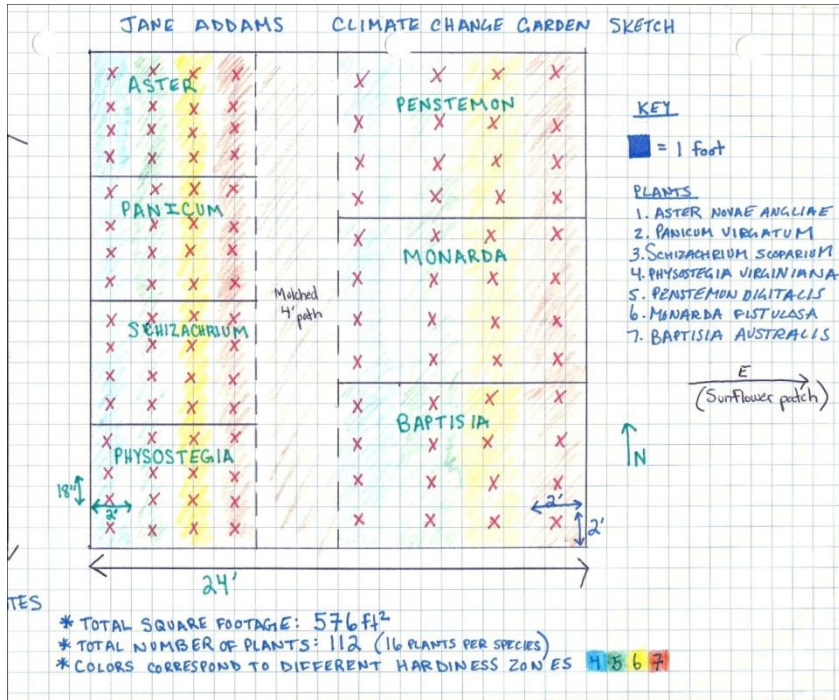 JANE ADDAMS CLIMATE CHANGE GARDEN SKETCH
ASTER
PANICUM
SCHIZACHRIUM
PHYSOSTEGIA
18"
2'
Mulched
4' path
PENSTEMON
MONARDA
BAPTISIA
2'
2'
24'
KEY
= 1 foot
PLANTS
1. ASTER NOVAE ANGLIAE
2. PANICUM VIRGATUM
3. SCHIZACHRIUM SCOPARIUM
4. PHYSOSTEGIA VIRGINIANA
5. PENSTEMON DIGITALIS
6. MONARDA FISTULOSA
7. BAPTISIA AUSTRALIS
E
(Sunflower patch)
N
TES
* TOTAL SQUARE FOOTAGE: 576 ft²
* TOTAL NUMBER OF PLANTS: 112 (16 PLANTS PER SPECIES)
* COLORS CORRESPOND TO DIFFERENT HARDINESS ZONES 4 5 6 7